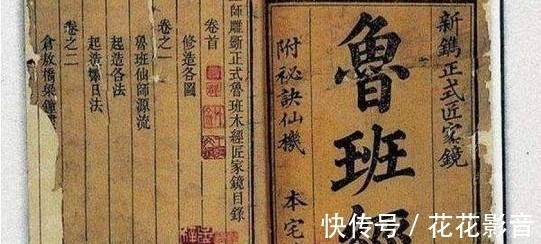 新鐫正式匠家鏡
魯班經
附祕訣仙機
本宅
師雕斲正式魯班木經匠家鏡目錄
卷首
修造各圖
魯班仙師源流
起造各法
起造擇日法
卷之二
倉敖橋梁鐘
快传号 / 花花影音